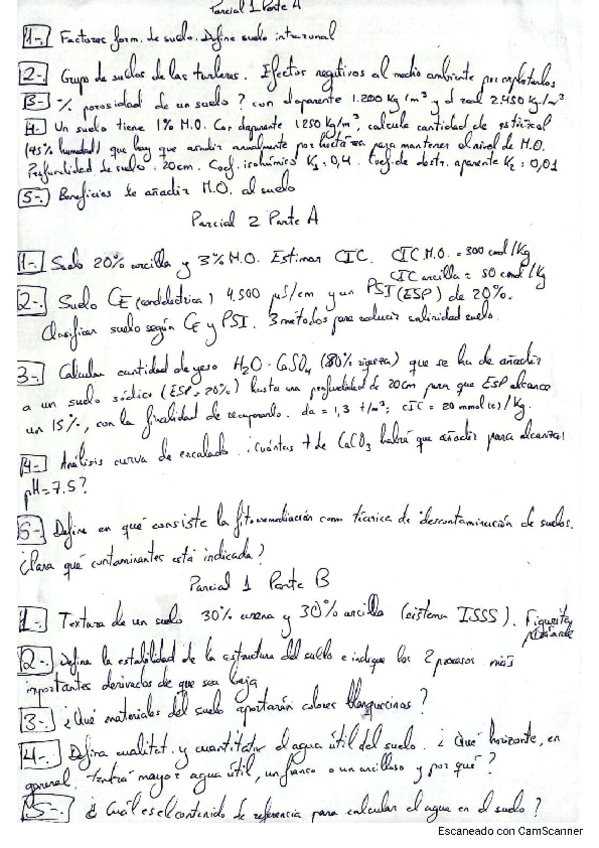 Parcial 1 Parte A
1-. Factores form. de suelo. Define suelo intrazonal
2-. Grupo de suelos de las turberas. Efectos negativos al medio ambiente por explotarlos
3-. % porosidad de un suelo? con d aparente 1.200 kg/m³ y d real 2.450 kg/m³
4-. Un suelo tiene 1% M.O. Con daparente 1250 kg/m³, calcula cantidad de estiércol
(45% humedad) que hay que añadir anualmente por hectárea para mantener el nivel de M.O.
Profundidad de suelo: 20cm. Coef. isohúmico K₁: 0,4. Coef. de destr. aparente K₂: 0,01
5-. Beneficios de añadir M.O. al suelo
Parcial 2 Parte A
1-. Suelo 20% arcilla y 3% M.O. Estimar CIC. CIC M.O. = 300 cmol/Kg
CIC arcilla = 50 cmol/Kg
2-. Suelo CE 4.500 µS/cm y un PSI (ESP) de 20%.
Clasificar suelo según CE y PSI. 3 métodos para reducir salinidad suelo.
3-. Calcular cantidad de yeso H₂O·CaSO₄ (80% riqueza) que se ha de añadir
a un suelo sódico (ESP = 20%) hasta una profundidad de 20cm para que ESP alcance
un 15%, con la finalidad de recuperarlo. da = 1,3 t/m³; CIC = 20 mmol(c)/Kg.
4-. Análisis curva de encalado. ¿Cuántas t de CaCO₃ habrá que añadir para alcanzar
pH=7.5?
5-. Define en qué consiste la fitorremediación como técnica de descontaminación de suelos.
¿Para qué contaminantes está indicada?
Parcial 1 Parte B
1-. Textura de un suelo 30% arena y 30% arcilla (sistema ISSS). Figurita
2-. Defina la estabilidad de la estructura del suelo e indique los 2 procesos más
importantes derivados de que sea baja
3-. ¿Qué materiales del suelo aportarán colores blanquecinos?
4-. Defina cualitat. y cuantitativ el agua útil del suelo. ¿Qué horizonte, en
general, tendrá mayor agua útil, un franco o un arcilloso y por qué?
5-. ¿Cuál es el contenido de referencia para calcular el agua en el suelo?
Escaneado con CamScanner